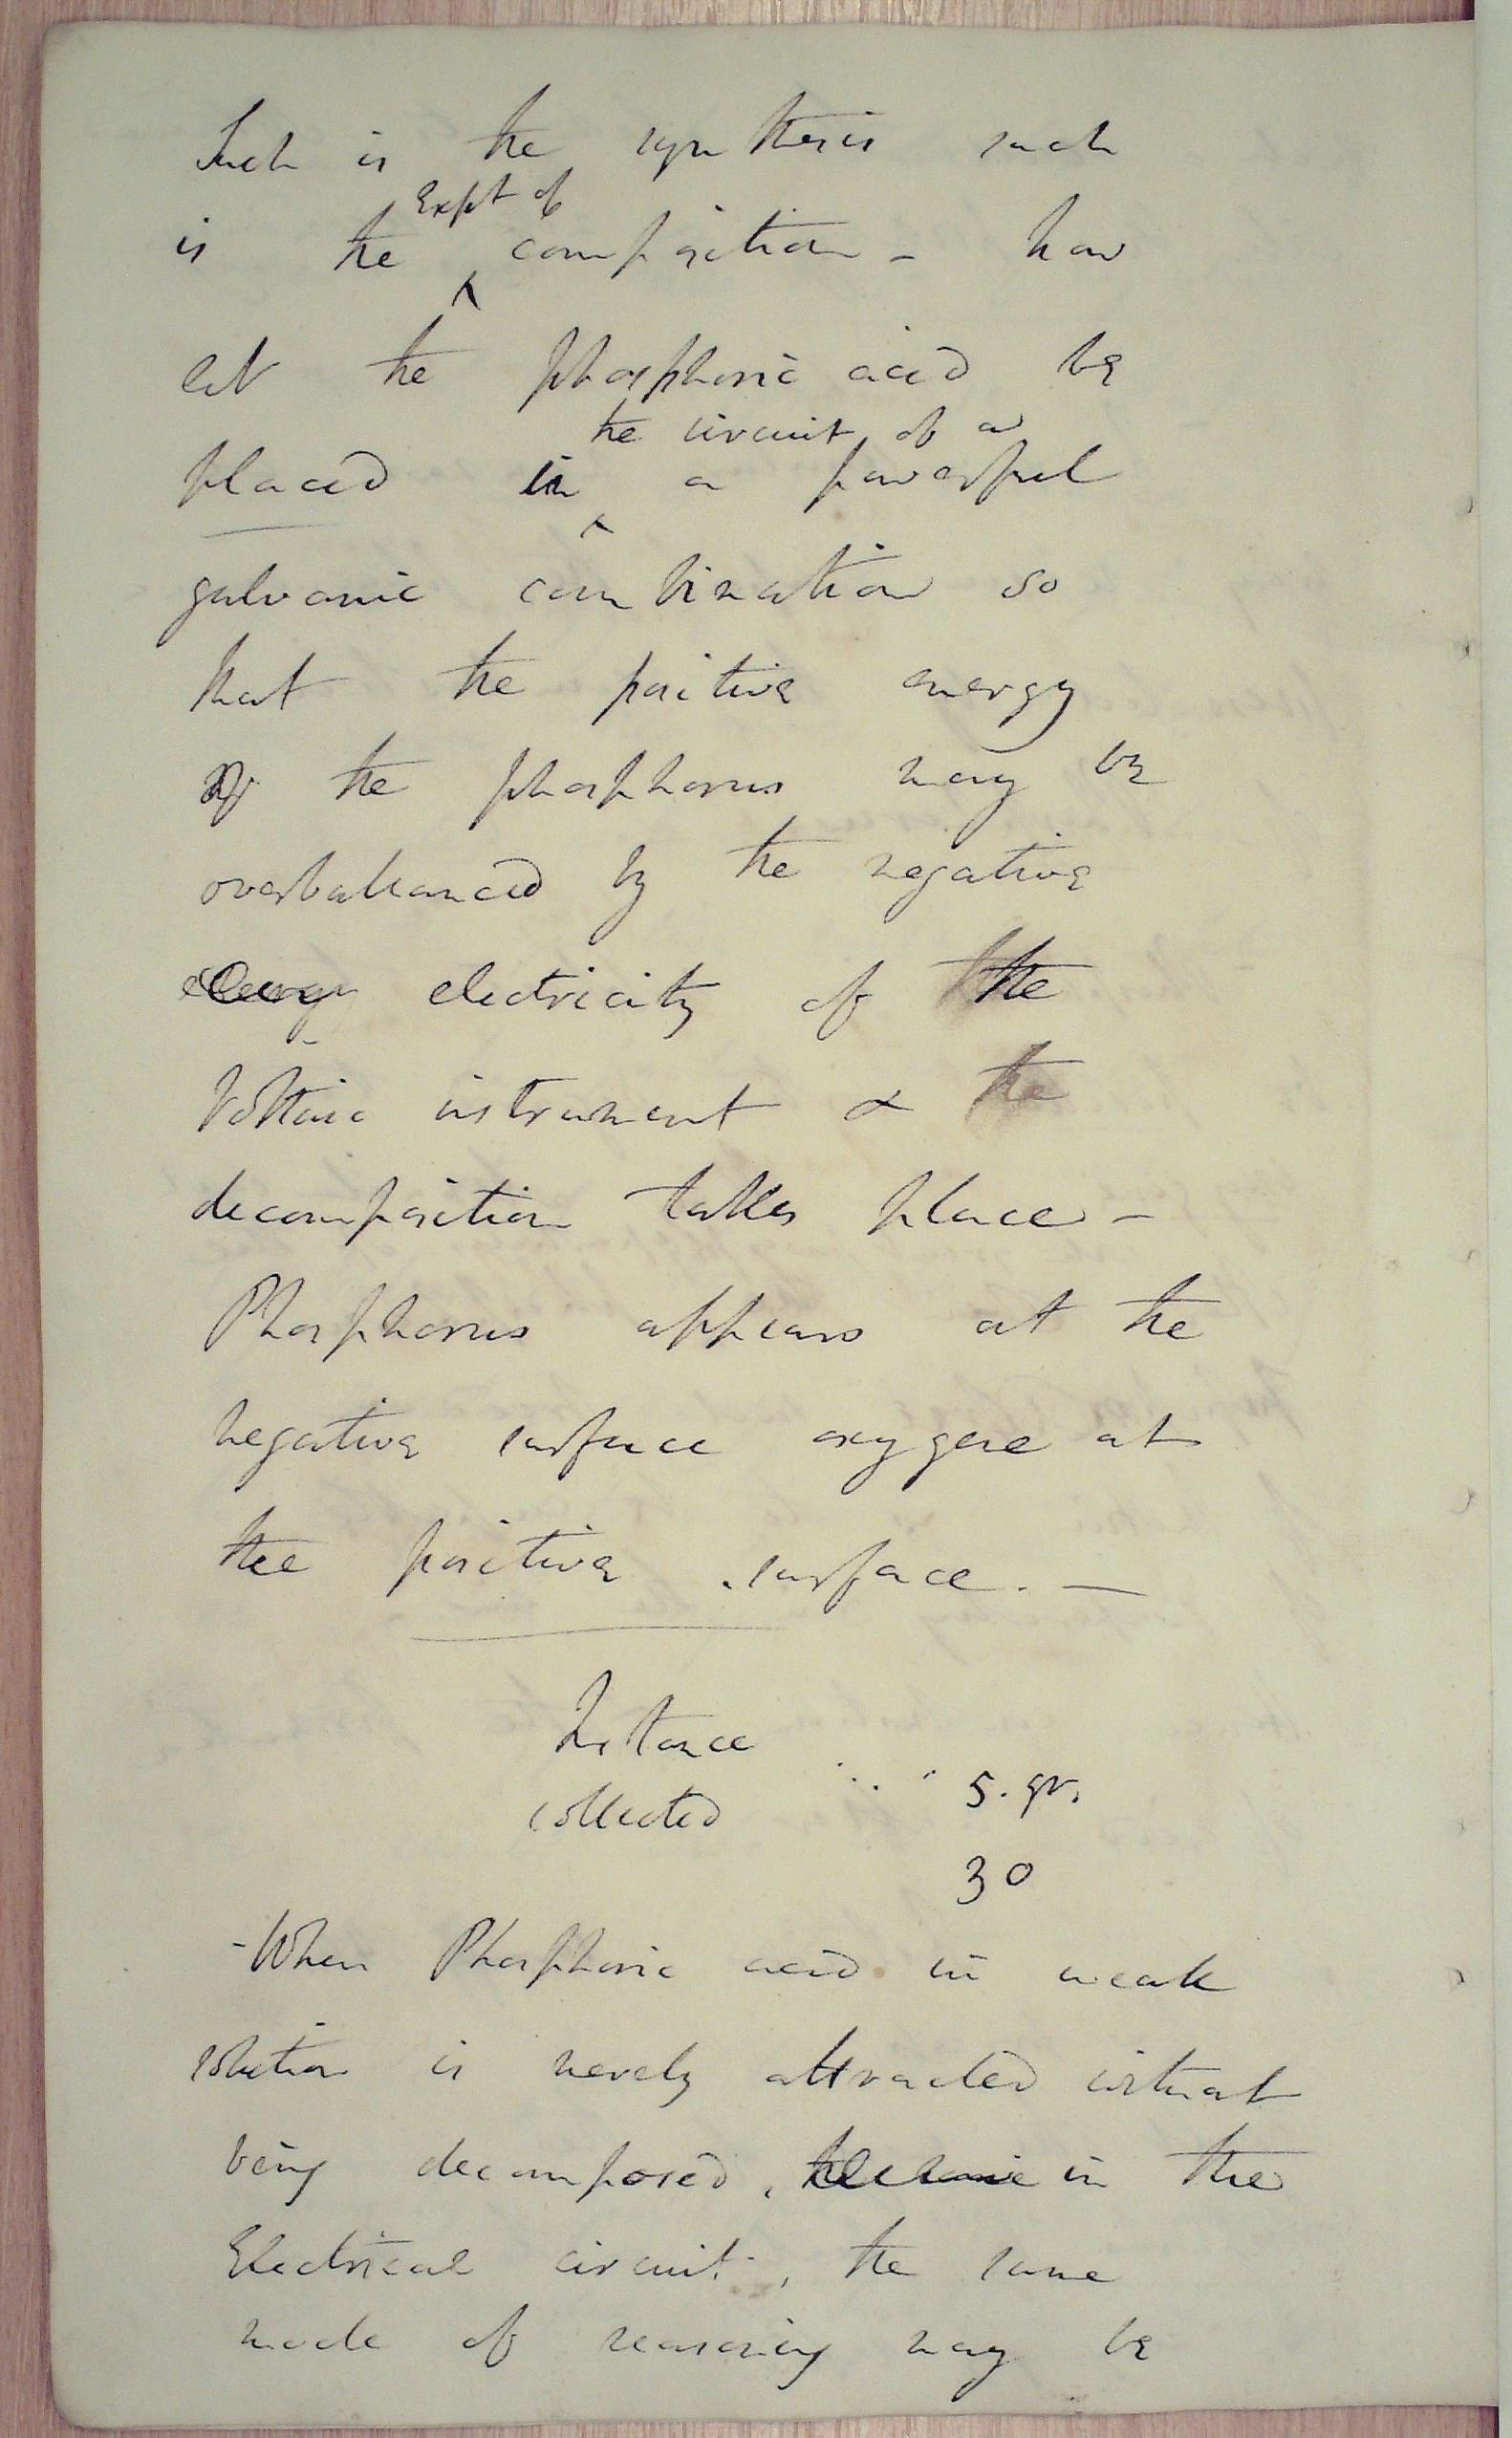 Such is the synthesis such
Expt of
is the ^ composition - how
let the phosphoric acid be
the circuit of a
placed in ^ a powerful
galvanic combination so
that the positive energy
of the phosphorus may be
overballanced by the negative
energy electricity of the
Voltaic instrument & the
decomposition takes place -
Phosphorus appears at the
negative surface oxygene at
the positive surface. —
Instance
... 5. gr.
collected
30
- When Phosphoric acid in weak
solution is merely attracted without
being decomposed, the same in the
Electrical circuit, the same
mode of reasoning may be